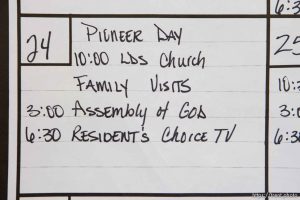 6:3
24
PIONEER DAY
10:00 LDS Church
FAMILY VISITS
3:00 Assembly of GOD
6:30 RESIDENT'S CHOICE TV
25
10:
3:0
6:30